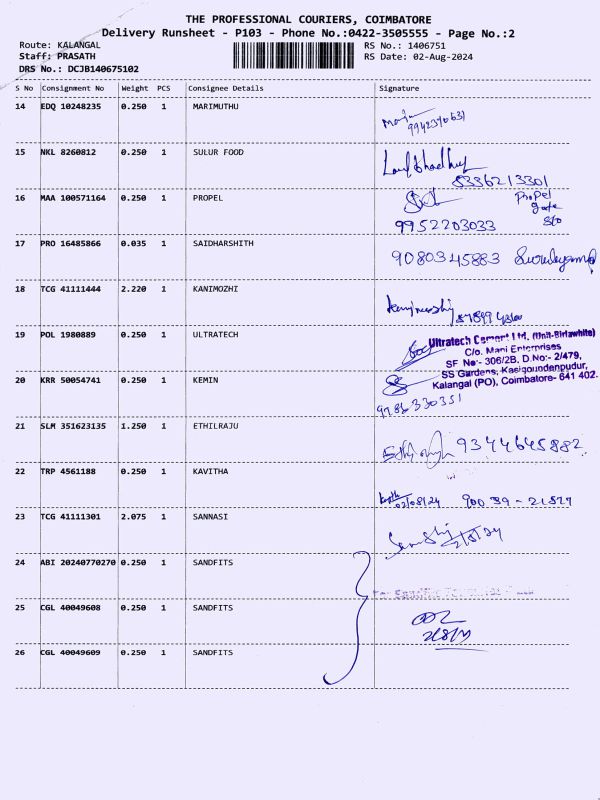 THE PROFESSIONAL COURIERS, COIMBATORE
Delivery Runsheet - P103 - Phone No.:0422-3505555 - Page No.:2
Route: KALANGAL
RS No.: 1406751
Staff: PRASATH
RS Date: 02-Aug-2024
DRS No.: DCJB140675102
S No Consignment No Weight PCS Consignee Details Signature
14 EDQ 10248235 0.250 1 MARIMUTHU
15 NKL 8260812 0.250 1 SULUR FOOD
8336213301
16 MAA 100571164 0.250 1 PROPEL
Propel
gate
9952203033
17 PRO 16485866 0.035 1 SAIDHARSHITH
9080345883
18 TCG 41111444 2.220 1 KANIMOZHI
19 POL 1980889 0.250 1 ULTRATECH
Ultratech Cement Ltd. (Unit-Birlawhite)
C/o. Mani Enterprises
SF No:- 306/2B, D.No:- 2/479,
SS Gardens, Kasigoundenpudur,
Kalangal (PO), Coimbatore- 641 402.
20 KRR 50054741 0.250 1 KEMIN
21 SLM 351623135 1.250 1 ETHILRAJU
9344645882
22 TRP 4561188 0.250 1 KAVITHA
02/08/24
23 TCG 41111301 2.075 1 SANNASI
2/8/24
24 ABI 20240770270 0.250 1 SANDFITS
25 CGL 40049608 0.250 1 SANDFITS
26 CGL 40049609 0.250 1 SANDFITS